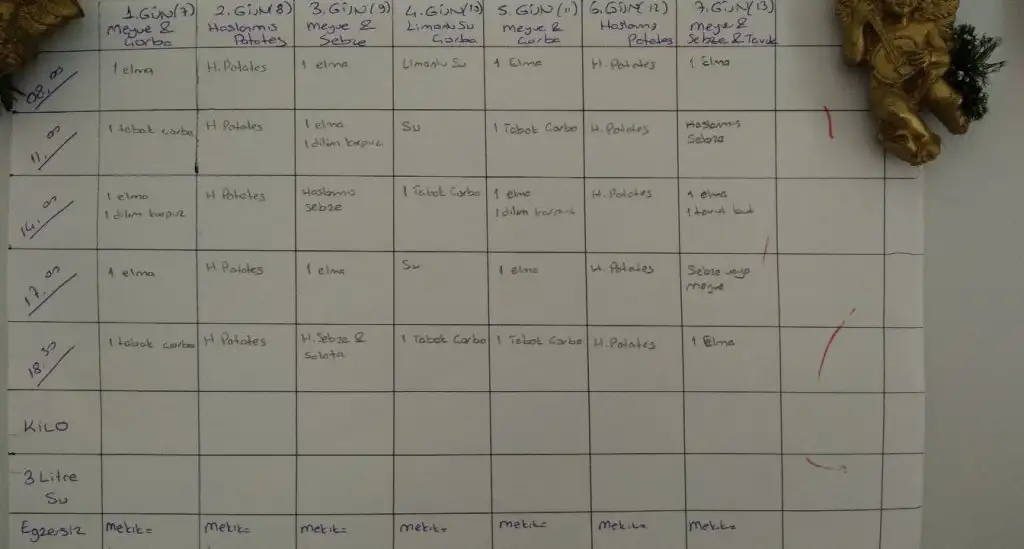 1.GÜN(7) 2.GÜN(8) 3.GÜN(9) 4.GÜN(10) 5.GÜN(11) 6.GÜN(12) 7.GÜN(13)
meyve & Haslanmis meyve & Limonlu Su meyve & Haslanmis meyve &
Corba Patates Sebze Corba Corba Patates Sebze & Tavuk
08.00 1 elma H.Patates 1 elma Limonlu Su 1 Elma H.Patates 1 Elma
11.00 1 tabak corba H.Patates 1 elma Su 1 Tabak Corba H.Patates Haslanmis
1 dilim karpuz Sebze
14.00 1 elma H.Patates Haslanmis 1 Tabak Corba 1 elma H.Patates 1 elma
1 dilim karpuz sebze 1 dilim karpuz 1 tavuk but
17.00 1 elma H Patates 1 elma Su 1 elma H.Patates Sebze veya
meyve
18.30 1 tabak corba H Patates H.Sebze & 1 Tabak Corba 1 Tabak Corba H.Patates 1 Elma
Salata
KILO
3 Litre
Su
Egzersiz mekik= mekik= mekik= mekik= mekik= mekik= mekik=